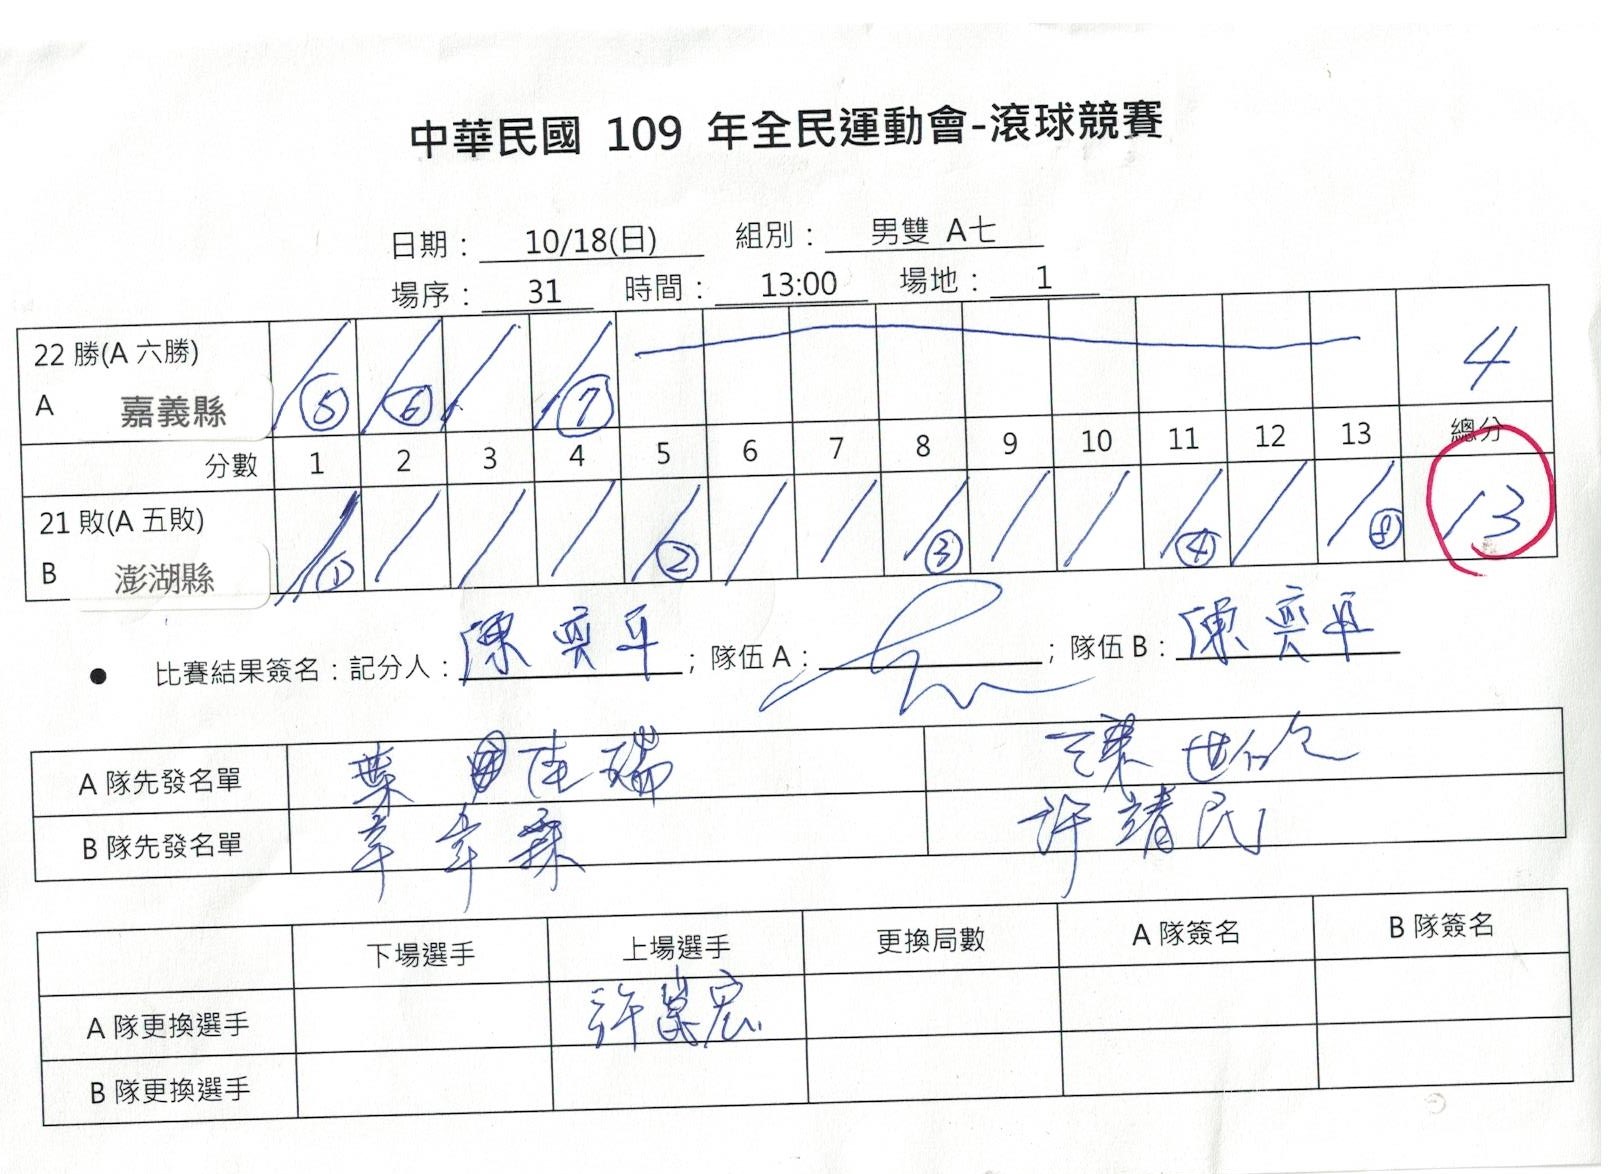 中華民國 109 年全民運動會-滾球競賽
日期： 10/18(日) 組別： 男雙 A七
場序： 31 時間： 13:00 場地： 1
22 勝(A 六勝)
A 嘉義縣 ⑤ ⑥ ⑦ 4
分數 1 2 3 4 5 6 7 8 9 10 11 12 13 總分
21 敗(A 五敗)
B 澎湖縣 ① ② ③ ④ ⑧ 13
● 比賽結果簽名：記分人：陳奕平；隊伍 A：；隊伍 B：陳奕平
A 隊先發名單 葉佳瑞
B 隊先發名單 許靖民
下場選手 上場選手 更換局數 A 隊簽名 B 隊簽名
A 隊更換選手 許宏
B 隊更換選手